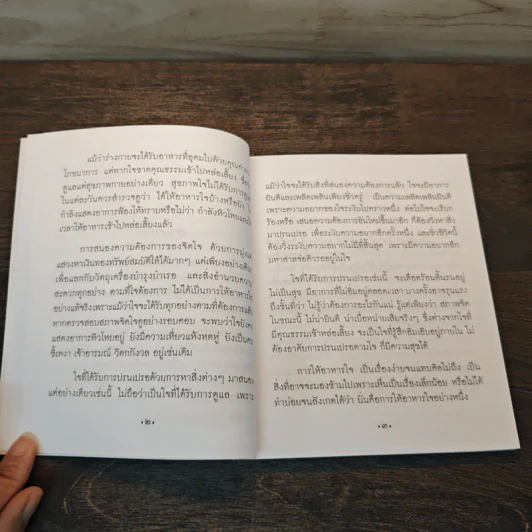 แม้ว่าร่างกายจะได้รับอาหารที่อุดมไปด้วยคุณค่าทาง
โภชนาการ แต่หากใจขาดคุณธรรมเข้าไปหล่อเลี้ยง
ดูแลแต่สุขภาพกายอย่างเดียว สุขภาพใจไม่ได้รับการดูแล
ในแต่ละวันควรสำรวจดูว่า ได้ให้อาหารใจบ้างหรือยัง
กำลังแสดงอาการฟ้องให้ทราบหรือไม่ว่า กำลังหิวโหยและ
เวลาให้อาหารเข้าไปหล่อเลี้ยงแล้ว
การสนองความต้องการของจิตใจ ด้วยการมุ่งแต่
แสวงหาเงินทองทรัพย์สมบัติให้ได้มากๆ แต่เพียงอย่างเดียว
เพื่อแลกกับวัตถุเครื่องบำรุงบำเรอ และสิ่งอำนวยความ
สะดวกทุกอย่าง ตามที่ใจต้องการ ไม่ได้เป็นการให้อาหารใจ
อย่างแท้จริงเพราะแม้ว่าใจจะได้รับทุกอย่างตามที่ต้องการแล้ว
หากตรวจสอบสภาพจิตใจดูอย่างรอบคอบ จะพบว่าใจยังคง
แสดงอาการหิวโหยอยู่ ยังมีความเหี่ยวแห้งหดหู่ ยังเป็น
ขี้เหงา เจ้าอารมณ์ วิตกกังวล อยู่เช่นเดิม
ใจที่ได้รับการปรนเปรอด้วยการหาสิ่งต่างๆ มาสนอง
แต่อย่างเดียวเช่นนี้ ไม่ถือว่าเป็นใจที่ได้รับการดูแล เพราะ
• ๒ •
แม้ว่าใจจะได้รับสิ่งที่สนองความต้องการแล้ว ใจจะมีอาการ
ยินดีและเพลิดเพลินเพียงชั่วครู่ เป็นความเพลิดเพลินยินดี
เพราะความอยากของใจระงับไปคราวหนึ่ง ต่อไปใจจะเรียก
ร้องหรือ เสนอความต้องการอันใหม่ขึ้นมาอีก ก็ต้องวิ่งหาสิ่ง
มาปรนเปรอ เพื่อระงับความอยากอีกครั้งหนึ่ง และชั่วชีวิตนี้
ต้องวิ่งระงับความอยากไม่มีที่สิ้นสุด เพราะมีความอยากอีก
มหาศาลต่อคิวรออยู่ในใจ
ใจที่ได้รับการปรนเปรอเช่นนี้ จะเดือดร้อนดิ้นรนอยู่
ไม่เป็นสุข มีอาการที่ไม่อิ่มอยู่ตลอดเวลา บางครั้งอาจรุนแรง
ถึงขั้นที่ว่า ไม่รู้ว่าต้องการอะไรกันแน่ รู้แต่เพียงว่า สภาพจิต
ในขณะนี้ ไม่น่ายินดี น่าเบื่อหน่ายเสียจริงๆ ซึ่งต่างจากใจที่
มีคุณธรรมเข้าหล่อเลี้ยง จะเป็นใจที่รู้สึกอิ่มเอิบอยู่ภายใน ไม่
ต้องอาศัยการปรนเปรอตามใจ ก็มีความสุขได้
การให้อาหารใจ เป็นเรื่องง่ายจนแทบคิดไม่ถึง เป็น
สิ่งที่อาจจะมองข้ามไปเพราะเห็นเป็นเรื่องเล็กน้อย หรือไม่ได้
ทำบ่อยจนสังเกตได้ว่า นั่นคือการให้อาหารใจอย่างหนึ่ง
• ๓ •